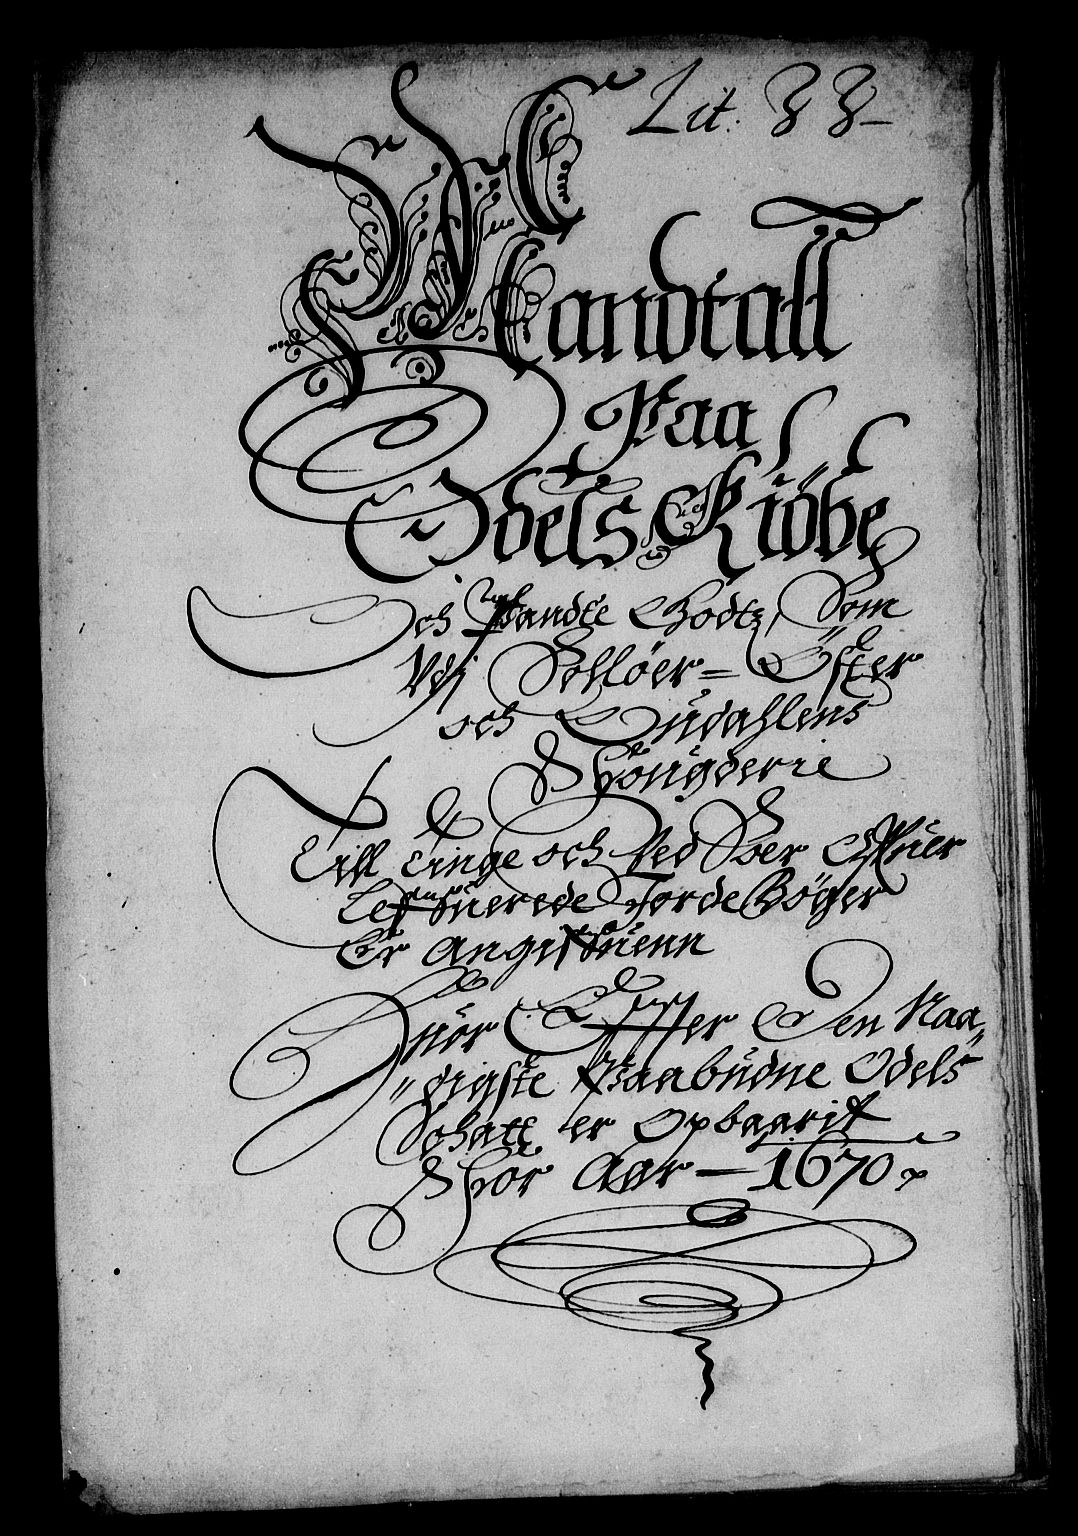 Lit. 
Mandtall
Paa
Odels Kiöbe
och Pandte Godtz, Som
Vdj Solløer = Öster
och (u)dahlens
Fougderie
Till Tinge och Ved Soer
Leffuerede JordeBöger
Er angiffuenn
Huor Effter Den Naa,,
,,digste Paabudne Odels
Schatt er Opbaarit
For Aar — 1670